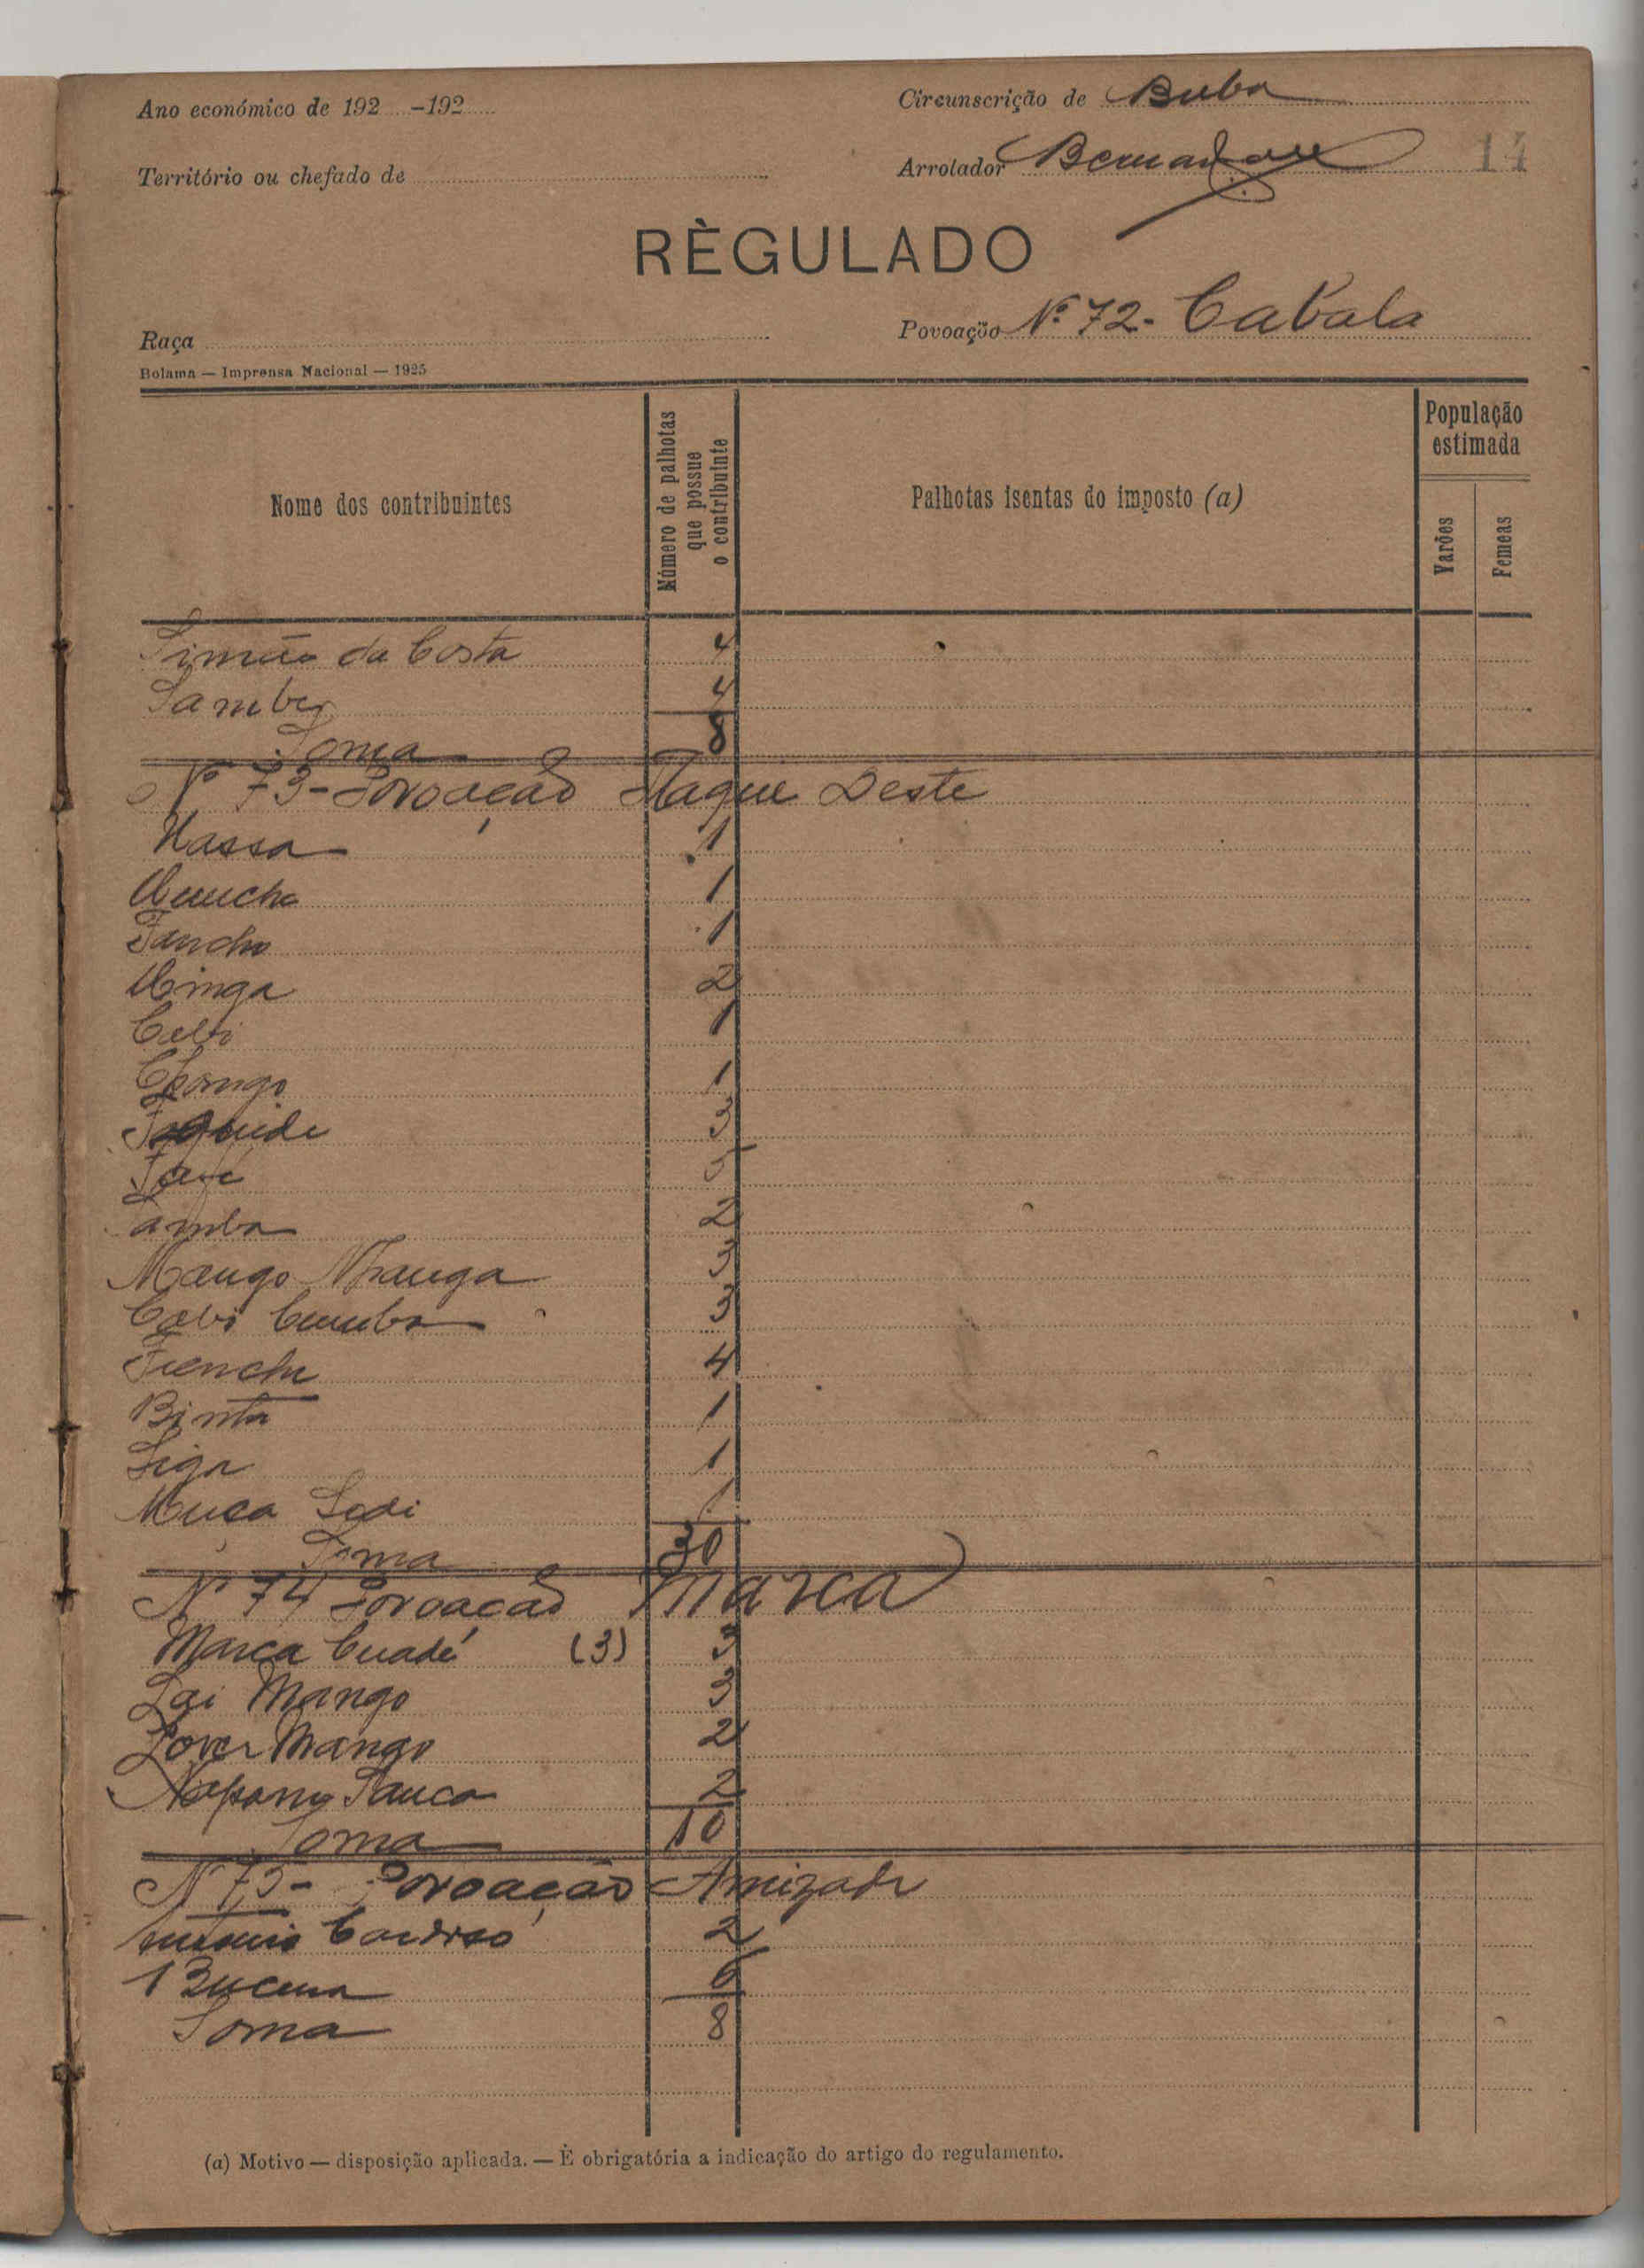 Ano económico de 192 -192
Circunscrição de Buba
Território ou chefado de
Arrolador
14
RÈGULADO
Raça
Povoação Nº 72- Cabala
Bolama — Imprensa Nacional — 1925
Nome dos contribuintes
Número de palhotas que possue o contribuinte
Palhotas isentas do imposto (a)
População estimada
Varões
Femeas
Simão da Costa 4
Samba 4
Soma 8
Nº 73- Povoação Maque Deste
Nassa 1
1
Fancho 1
Minga 2
Cabi 1
1
3
5
Samba 2
Mango Nhanga 3
Cabi Cumba 3
4
Binta 1
Siga 1
Musa Sedi 1
Soma 30
Nº 74 Povoação Marca
Marca Cuadé (3) 3
Lai Mango 3
Mango 2
2
Soma 10
Nº 75- Povoação Amizade
Antonio Cardoso 2
6
Soma 8
(a) Motivo — disposição aplicada. — É obrigatória a indicação do artigo do regulamento.